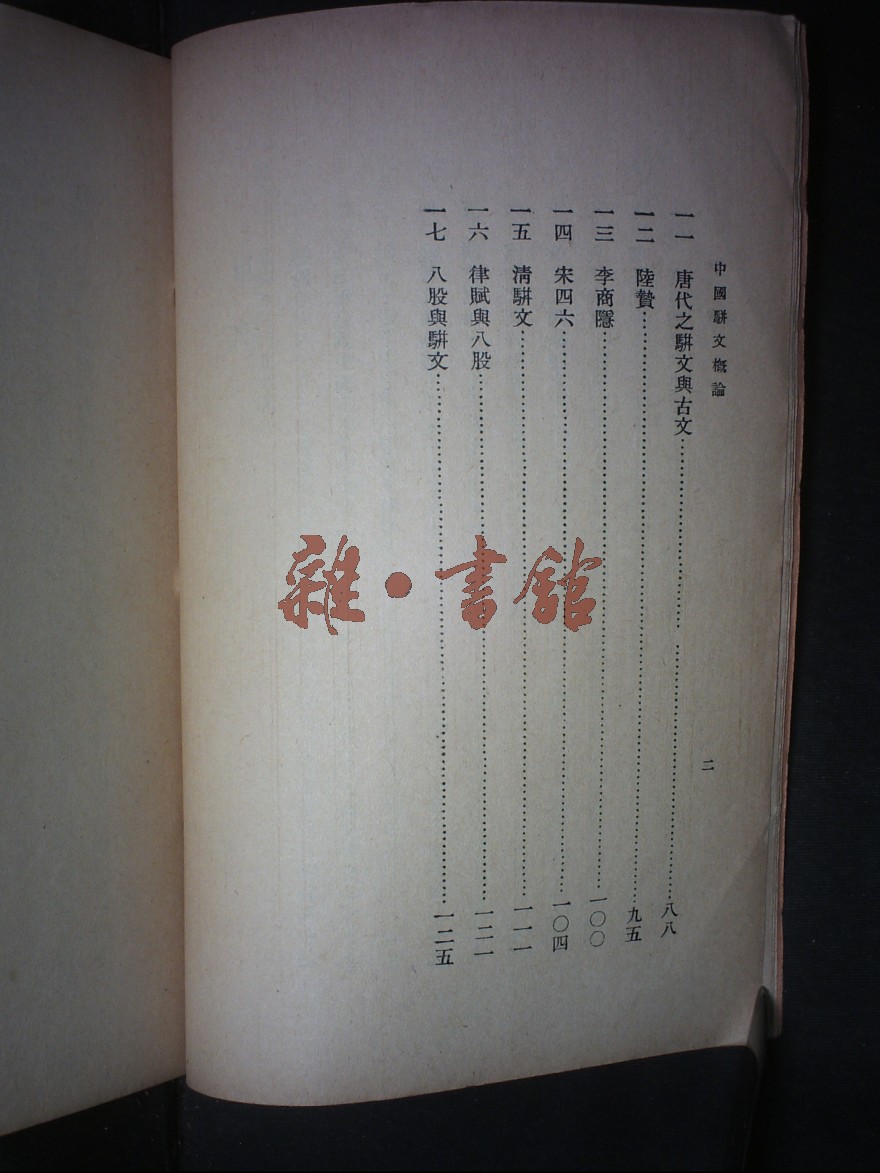 中國駢文概論
二
一一　唐代之駢文與古文……八八
一二　陸贄……九五
一三　李商隱……一〇〇
一四　宋四六……一〇四
一五　清駢文……一一一
一六　律賦與八股……一二一
一七　八股與駢文……一二五
雜·書館